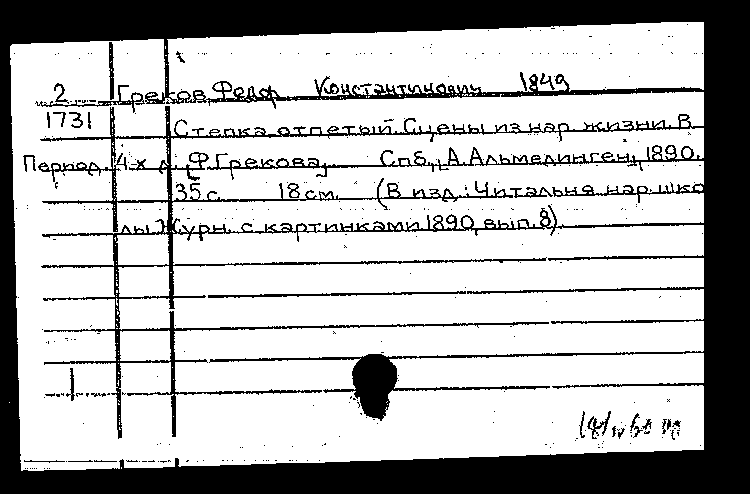 2 Греков Федор Константинович 1849
1731 Степка отпетый. Сцены из нар. жизни. В
Период. 4-х д. [Ф. Грекова]. Спб., "А. Альмединген", 1890.
35 с. 18 см. (В изд.: Читальня нар. шко
лы. Журн. с картинками 1890, вып. 8).